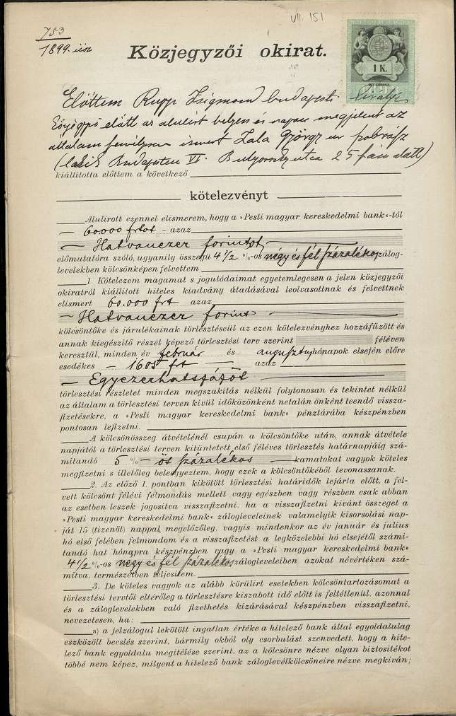 753
1899. üsz
VII. 151
Közjegyzői okirat.
1 K.
Előttem Rupp Zsigmond budapesti királyi
közjegyző előtt az alulírt helyen és napon megjelent az
általam személyesen ismert Zala György úr szobrász
(lakik Budapesten VI. Bulyovszky utca 25 szám alatt)
kiállította előttem a következő
kötelezvényt
Alulirott ezennel elismerem, hogy a «Pesti magyar kereskedelmi bank»-tól
— 60000 frtot — azaz
— Hatvanezer forintot —
előmutatóra szóló, ugyanily összegű 4 1/2 %-os négy és fél százalékos zálog-
levelekben kölcsönképen felvettem
1. Kötelezem magamat s jogutódaimat egyetemlegesen a jelen közjegyzői
okiratról kiállított hiteles kiadvány átadásával leolvasottnak és felvettnek
elismert 60.000 frt azaz
— Hatvanezer forint —
kölcsöntőke és járulékainak törlesztésül az ezen kötelezvényhez hozzáfűzött és
annak kiegészítő részét képező törlesztési terv szerint féléven
keresztül, minden év február és augusztus hónapok elsején előre
esedékes — 1605 frt — azaz
— Egyezerhatszázöt
törlesztési részletet minden megszakítás nélkül folytonosan és tekintet nélkül
az általam a törlesztési terven kívül időközönként netalán önként teendő vissza-
fizetésekre, a «Pesti magyar kereskedelmi bank» pénztárába készpénzben
pontosan lefizetni.
A kölcsönösszeg átvételénél csupán a kölcsöntőke után, annak átvétele
napjától a törlesztési terven kitüntetett első féléves törlesztés határnapjáig szá-
mítandó 5 %-os százalékos kamatokat vagyok köteles
megfizetni s illetőleg belegyeztem hogy ezek a kölcsöntőkéből levonassanak.
2. Az előző 1. pontban kikötött törlesztési határidők lejárta előtt, a fel-
vett kölcsönt félévi felmondás mellett vagy egészben vagy részben csak abban
az esetben leszek jogosítva visszafizetni, ha a visszafizetni kívánt összeget a
«Pesti magyar kereskedelmi bank» zálogleveleinek valamelyik kisorsolási nap-
ját 15 (tizenöt) nappal megelőzőleg, vagyis mindenkor az év január és julius
hó első felében felmondom és a visszafizetést a legközelebbi hó elsejétől számí-
tandó hat hónapra készpénzben vagy a «Pesti magyar kereskedelmi bank»
4 1/2 %-os négy és fél százalékos zálogleveleiben azokat névértékben számí-
tva természetben teljesítem.
3. De köteles vagyok az alább körülírt esetekben kölcsöntartozásomat a
törlesztési tervtől eltérőleg a törlesztésre kiszabott idő előtt is feltétlenül, azonnal
és a záloglevelekben való fizethetés kizárásával készpénzben visszafizetni,
nevezetesen, ha:
a) a jelzálogul lekötött ingatlan értéke a hitelező bank által egyoldalulag
eszközölt becslés szerint, bármily okból oly csorbulást szenvedett, hogy a hite-
lező bank egyoldalu megitélése szerint, az a kölcsönre nézve olyan biztosítékot
többé nem képez, milyent a hitelező bank záloglevélkölcsöneire nézve megkíván;